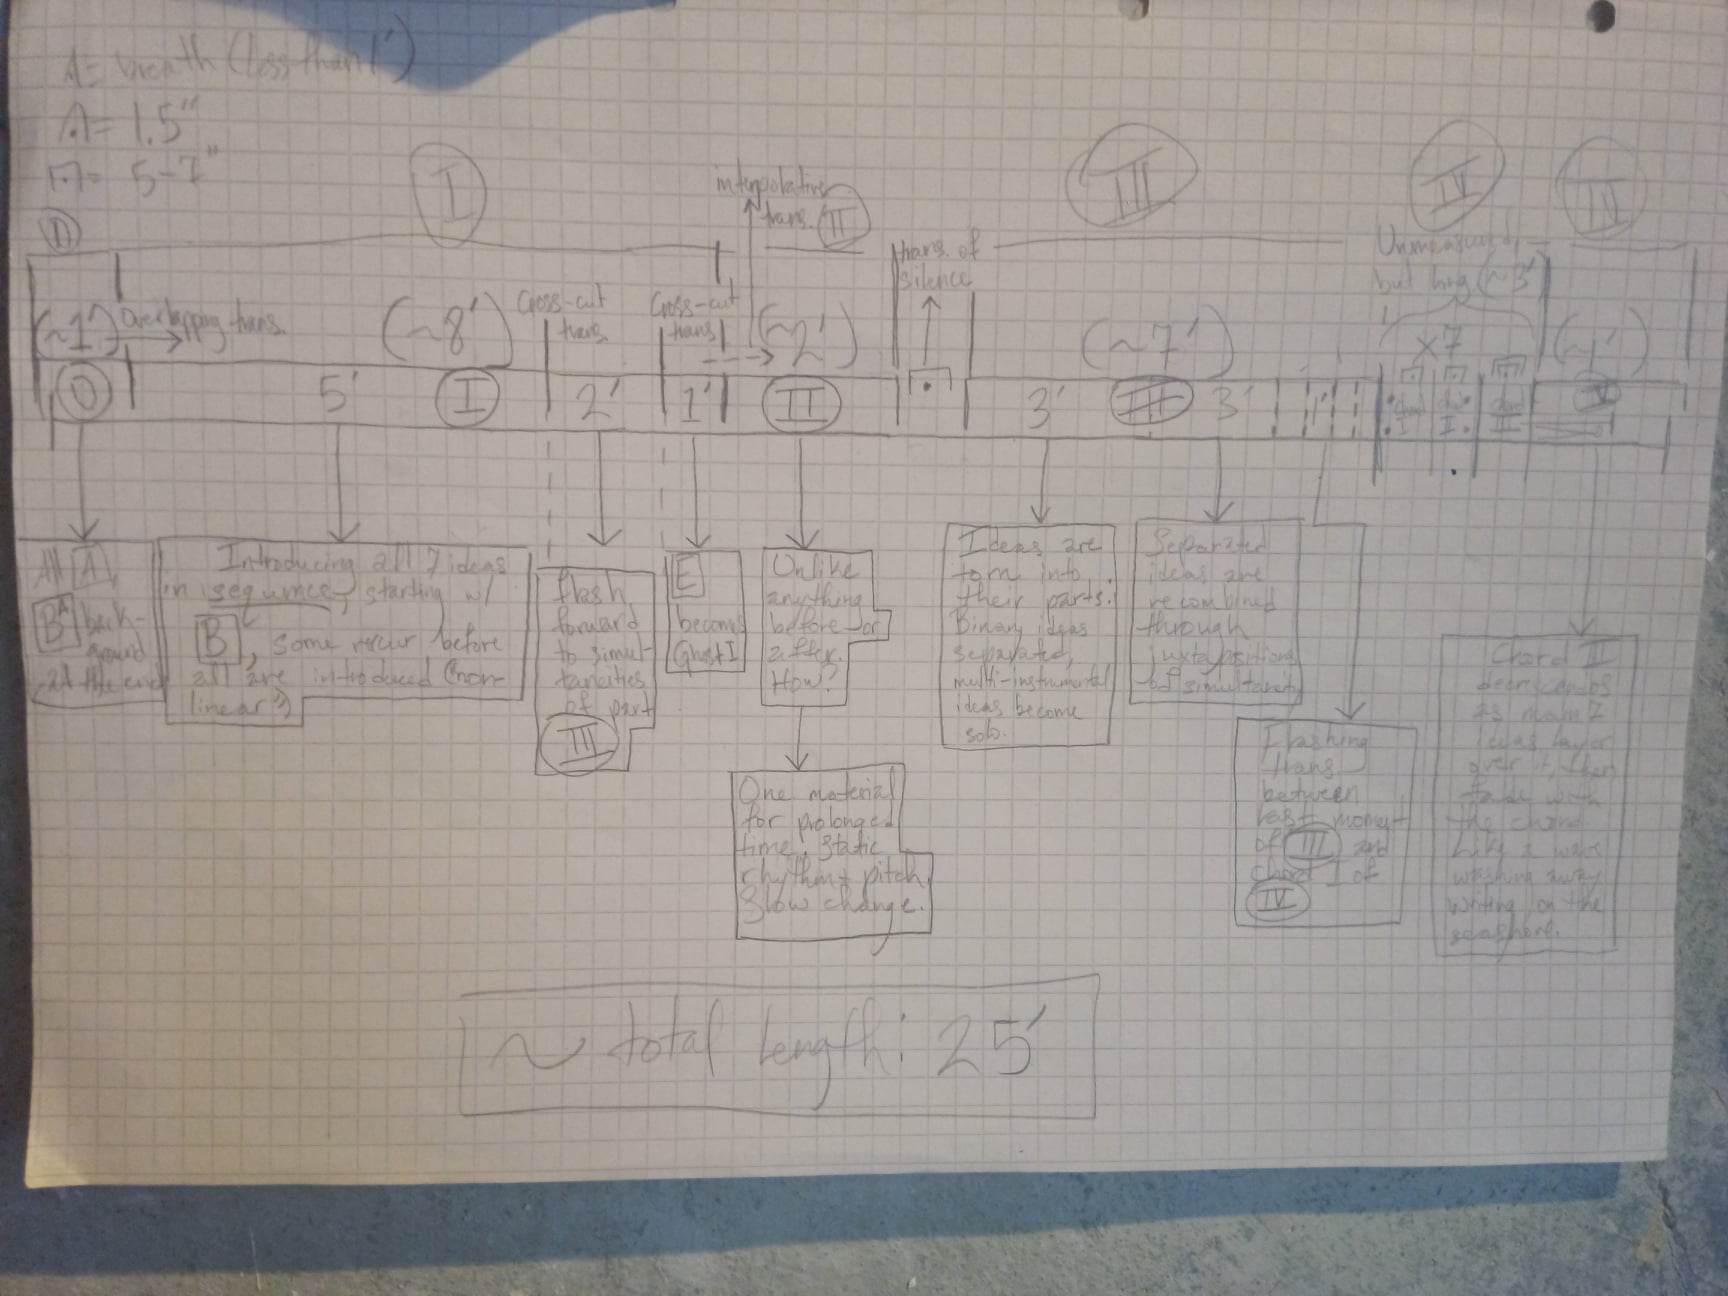 = breath (less than 1')
= 1.5"
= 5-7"
I
interpolative
trans.
II
III
IV
trans. of
silence
Unmeasured,
but long (~3')
(~1')
Overlapping trans.
(~8')
Cross-cut
trans.
Cross-cut
trans.
(~2')
(~7')
x7
(~1')
0
5'
I
2'
1'
II
3'
III
3'
1'
All A,
B
back-
ground
at the end
Introducing all 7 ideas
in sequence, starting w/
B, some recur before
all are introduced (non-
linear)
flash
forward
to simul-
taneities
of part
III
E
becomes
Ghost I
Unlike
anything
before or
after.
How?
One material
for prolonged
time. Static
rhythm + pitch.
Slow change.
Ideas are
torn into
their parts.
Binary ideas
separated,
multi-instrumental
ideas become
solo.
Separated
ideas are
recombined
through
juxtapositions
of simultaneity
Flashing
trans
between
last moment
of III and
chord I of
IV
Chord II
decrescendos
as main 7
ideas layer
over it, then
fade with
the chord.
Like a wave
washing away
writing on the
seashore.
~ total length: 25'